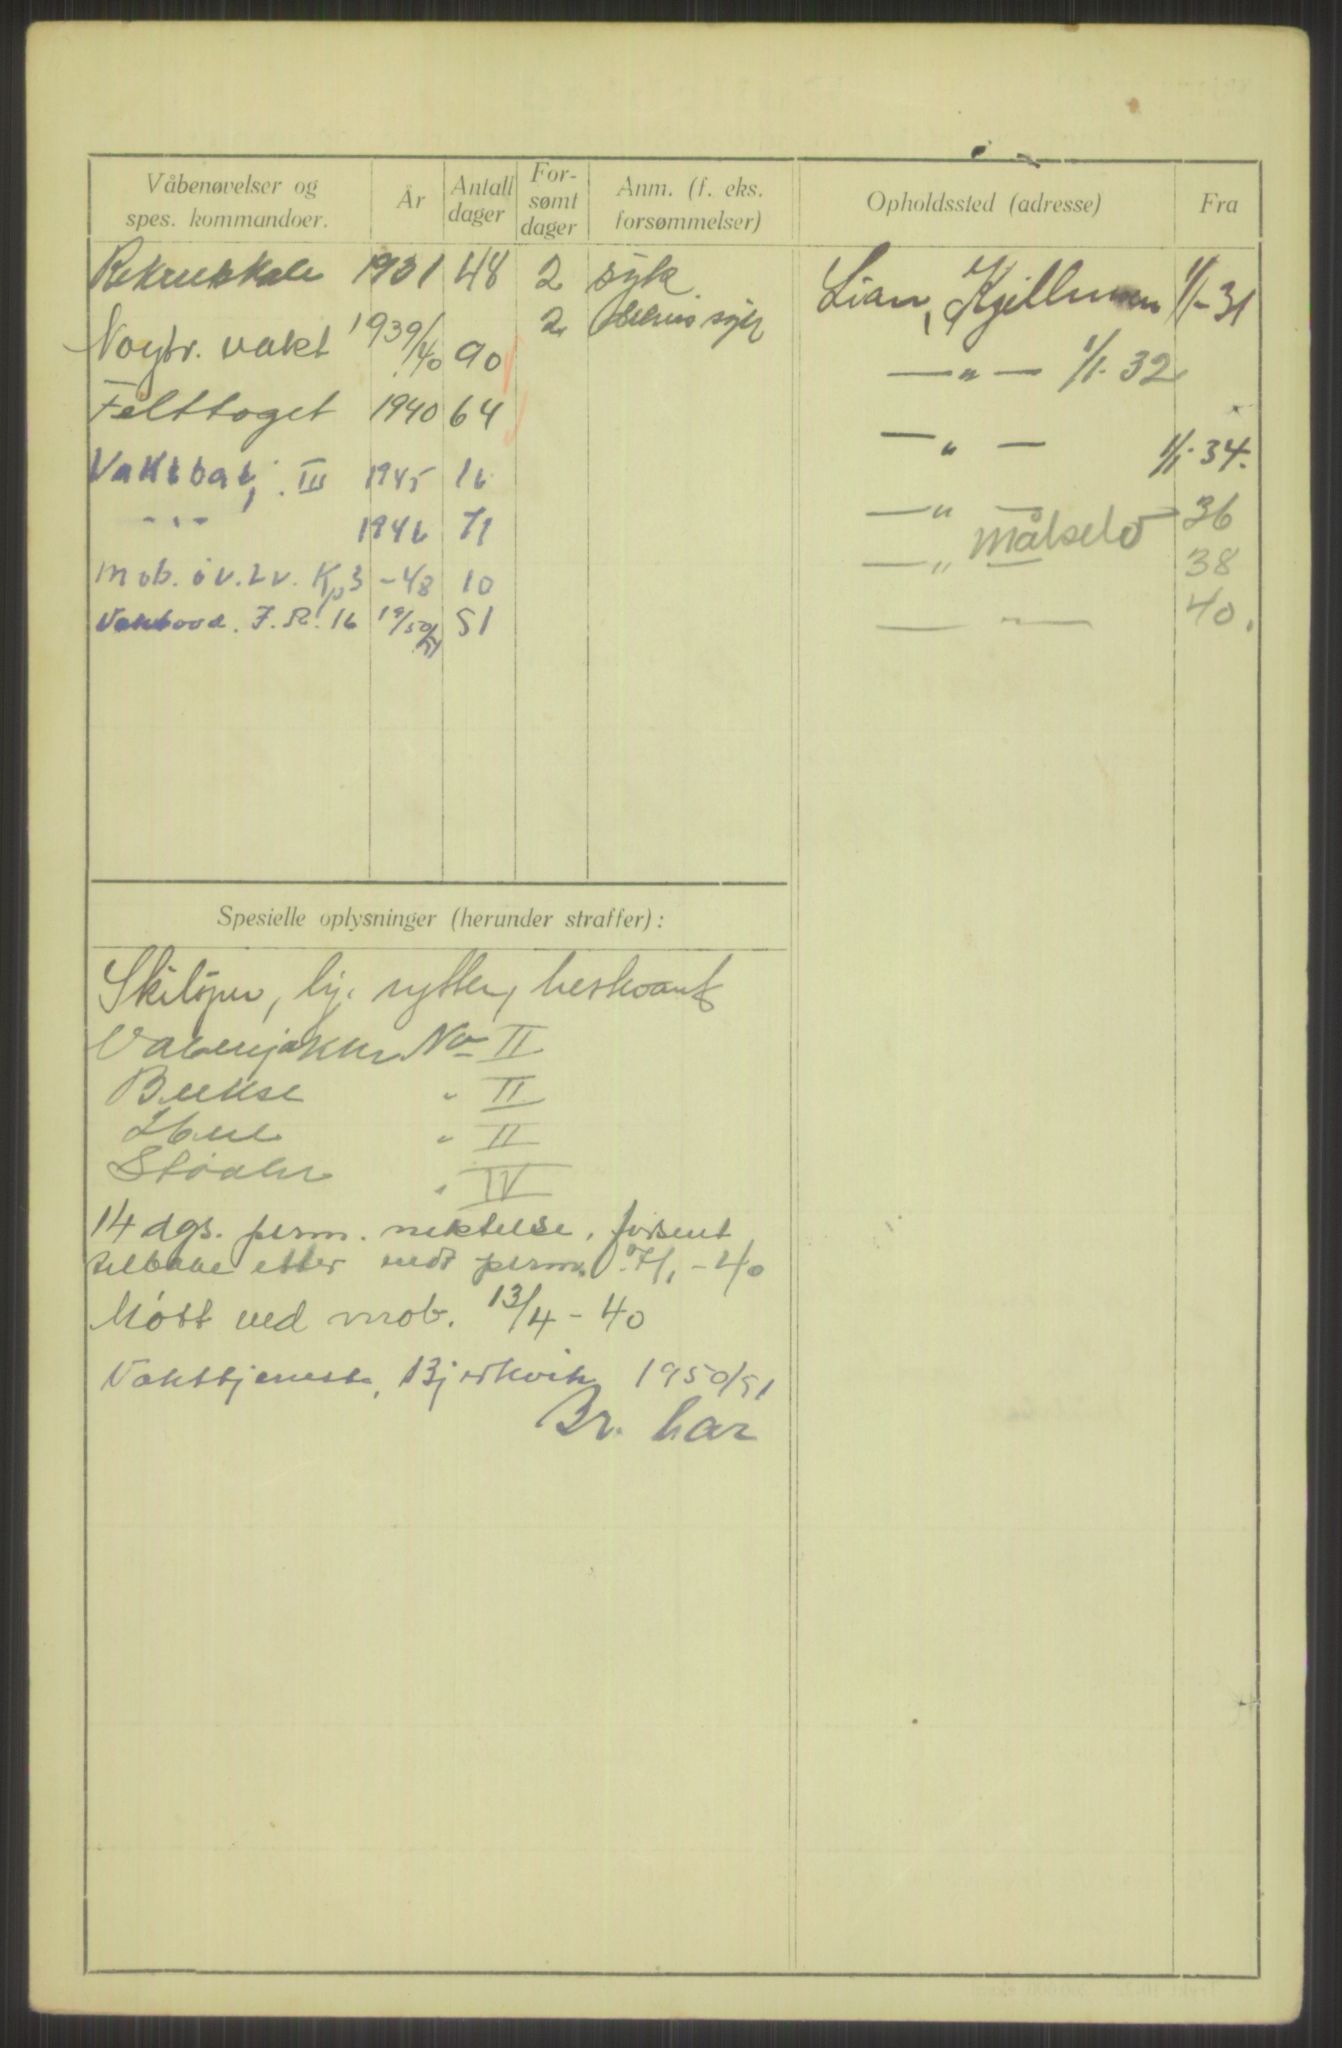 Våbenøvelser og spes. kommandoer. | År | Antall dager | For-sømt dager | Anm. (f. eks. forsømmelser) | Opholdssted (adresse) | Fra
Rekrutskole 1931 48 2 syk Lian, Kjellmoen 1/1-31
2 syk
Nøytr. vakt 1939/40 90 —"— 1/1. 32
Felttoget 1940 64 —"— 1/1-34.
Vaktbat. III 1945 16 —"— 36
-"- 1946 71 Målselv
—"— 38
Mob. öv. Lv. Kp 3 -48 10 40.
Vaktavd. I.R. 16 19/50/51 51
Spesielle oplysninger (herunder straffer):
Skiløper, rytter, hestvant
Våbenjakke No II
Bukse " II
Hue " II
Støvler " IV
14 dgs. perm. nektelse, forsent
tilbake etter endt perm. 7/1-40
Møtt ved mob. 13/4-40
Vakttjeneste, Bjerkvik 1950/51
Br. har